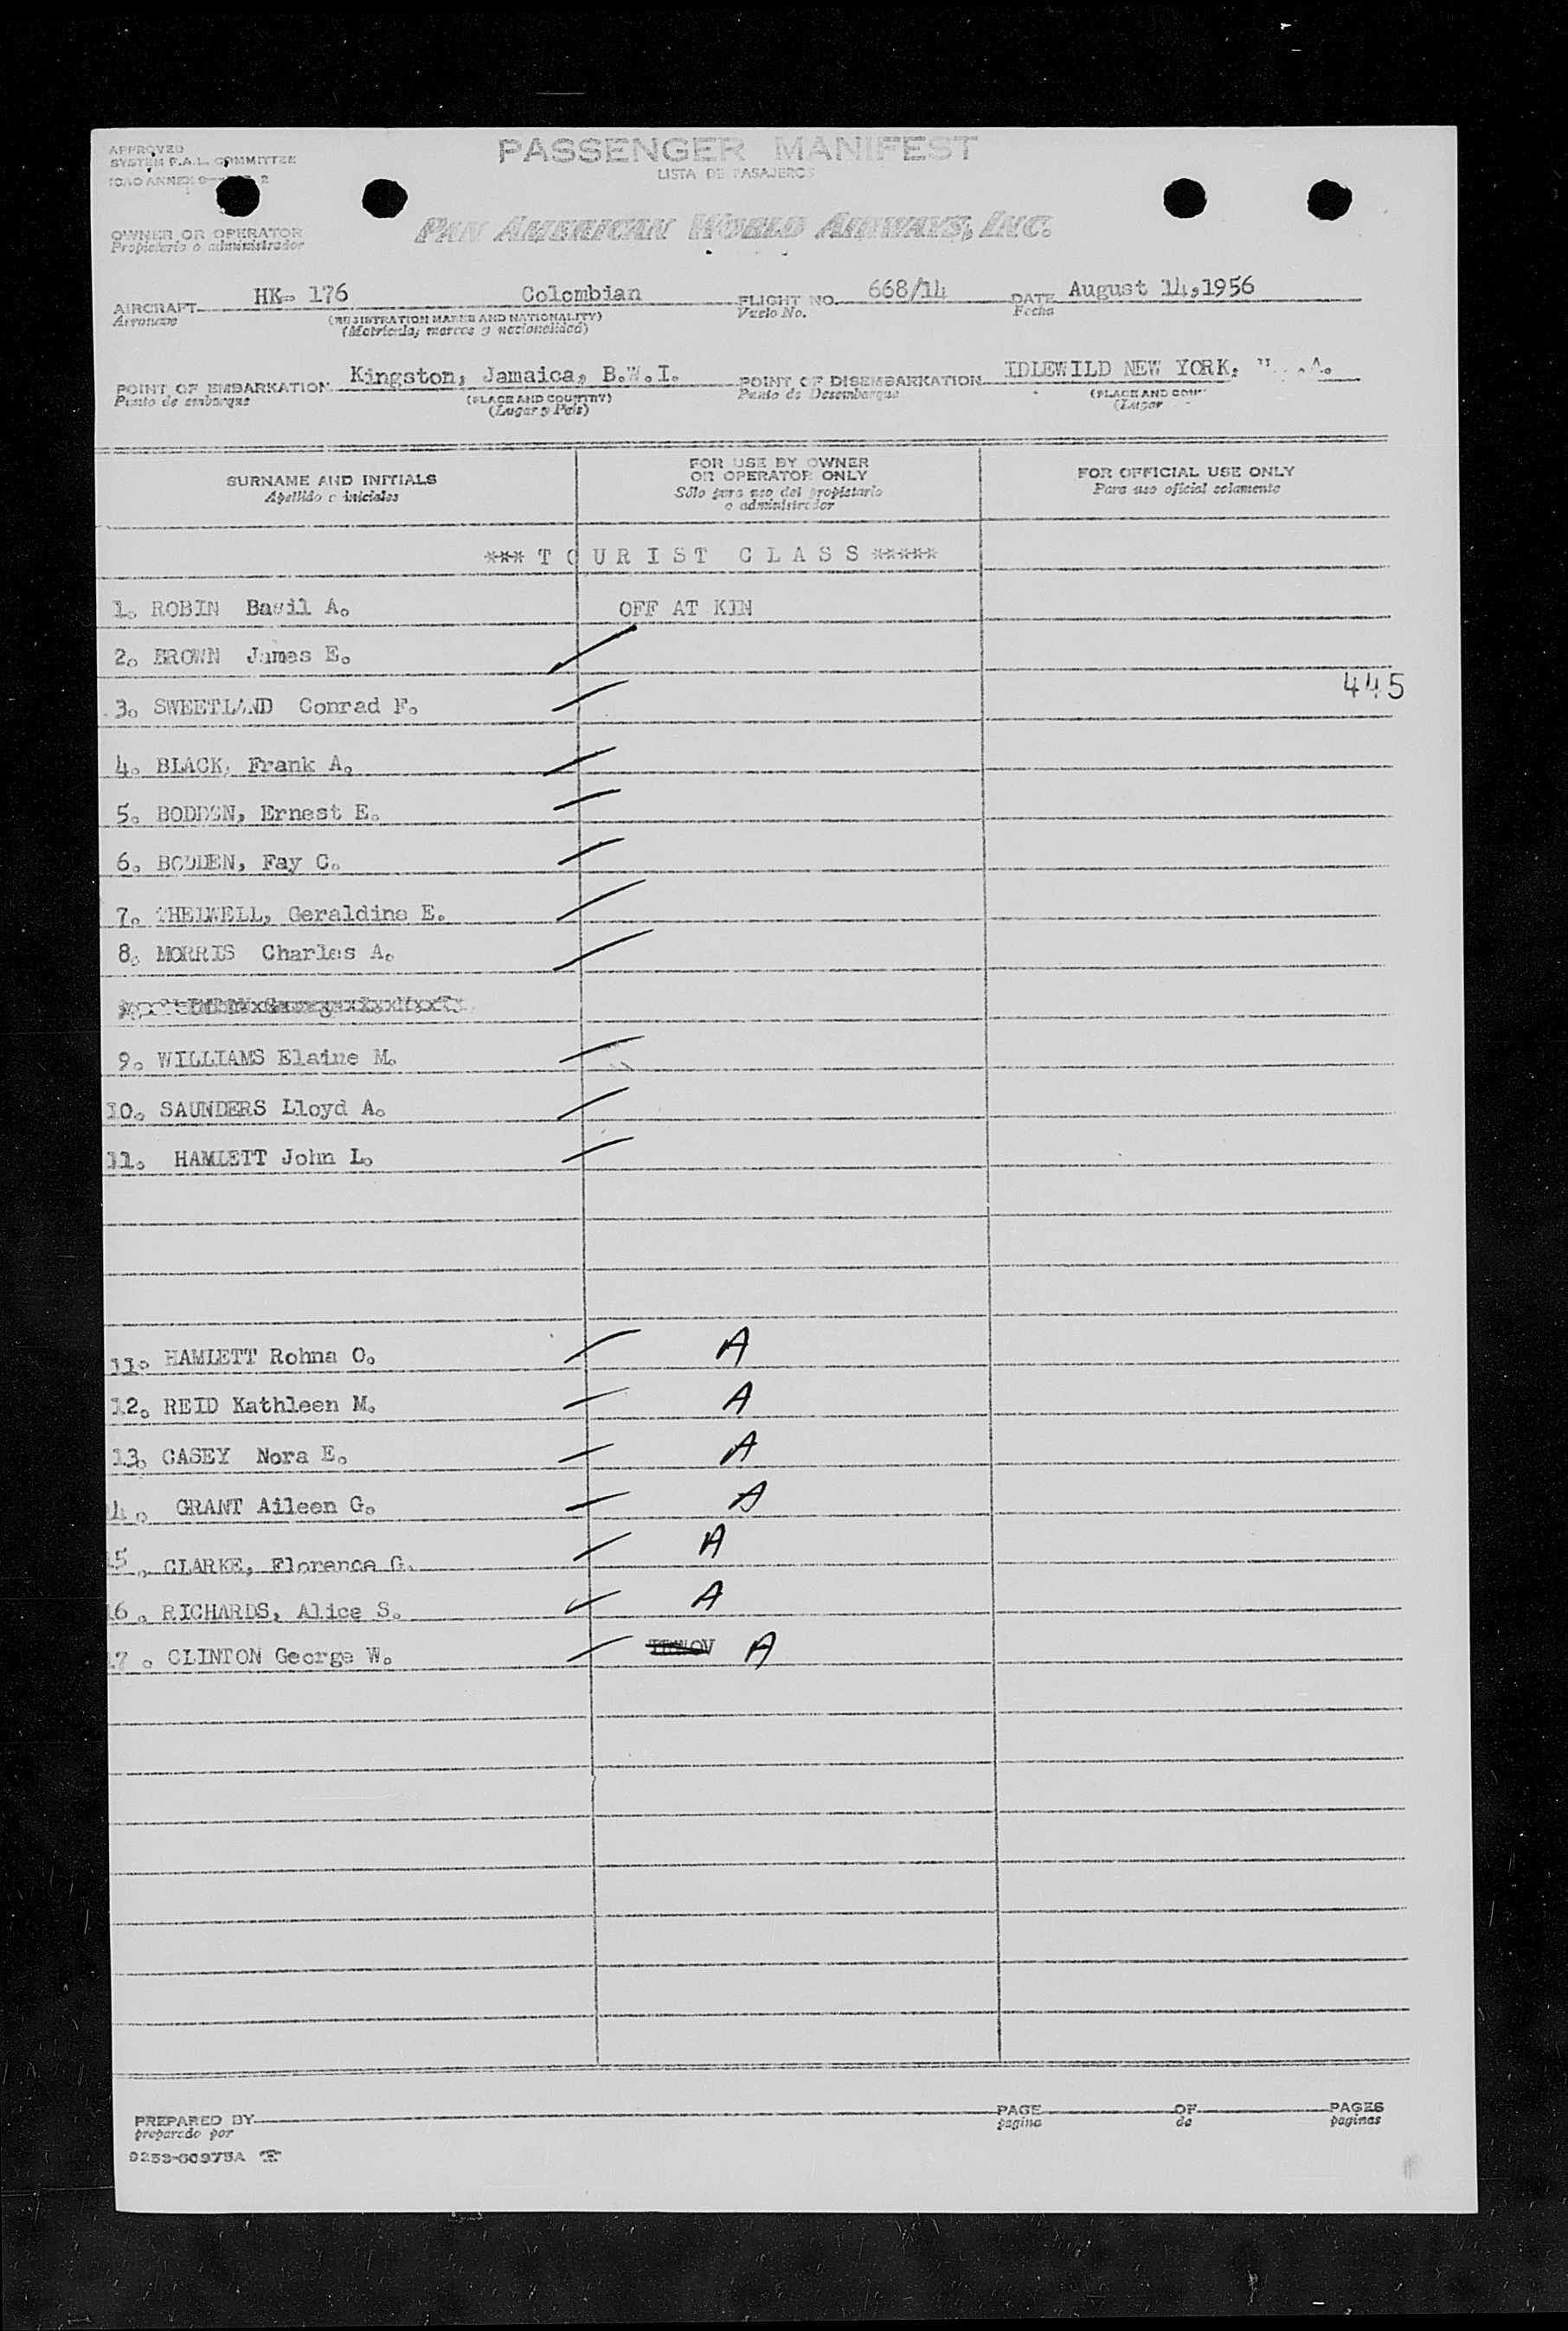 APPROVED
SYSTEM P.A.L. COMMITTEE
ICAO ANNEX 9 2
PASSENGER MANIFEST
LISTA DE PASAJEROS
OWNER OR OPERATOR
Propietario o administrador
PAN AMERICAN WORLD AIRWAYS, INC.
AIRCRAFT HK- 176 Colombian FLIGHT NO. 668/14 DATE August 14,1956
Aeronave (REGISTRATION MARKS AND NATIONALITY) Vuelo No. Fecha
(Matrícula, marcas y nacionalidad)
POINT OF EMBARKATION Kingston, Jamaica, B.W.I. POINT OF DISEMBARKATION IDLEWILD NEW YORK, .A.
Punto de embarque (PLACE AND COUNTRY) Punto de Desembarque (PLACE AND
(Lugar y País) (Lugar
SURNAME AND INITIALS
Apellido e iniciales
FOR USE BY OWNER
OR OPERATOR ONLY
Sólo para uso del propietario
o administrador
FOR OFFICIAL USE ONLY
Para uso oficial solamente
*** T O U R I S T C L A S S *****
1. ROBIN Basil A. OFF AT KIN
2. BROWN James E.
445
3. SWEETLAND Conrad F.
4. BLACK, Frank A.
5. BODDEN, Ernest E.
6. BODDEN, Fay C.
7. THELWELL, Geraldine E.
8. MORRIS Charles A.
9. WILLIAMS Elaine M.
10. SAUNDERS Lloyd A.
11. HAMLETT John L.
11. HAMLETT Rohna O. A
12. REID Kathleen M. A
13. CASEY Nora E. A
4. GRANT Aileen G. A
5. CLARKE, Florence G. A
16. RICHARDS, Alice S. A
17. CLINTON George W. A
PREPARED BY PAGE OF PAGES
preparado por pagina de paginas
9253-60975A